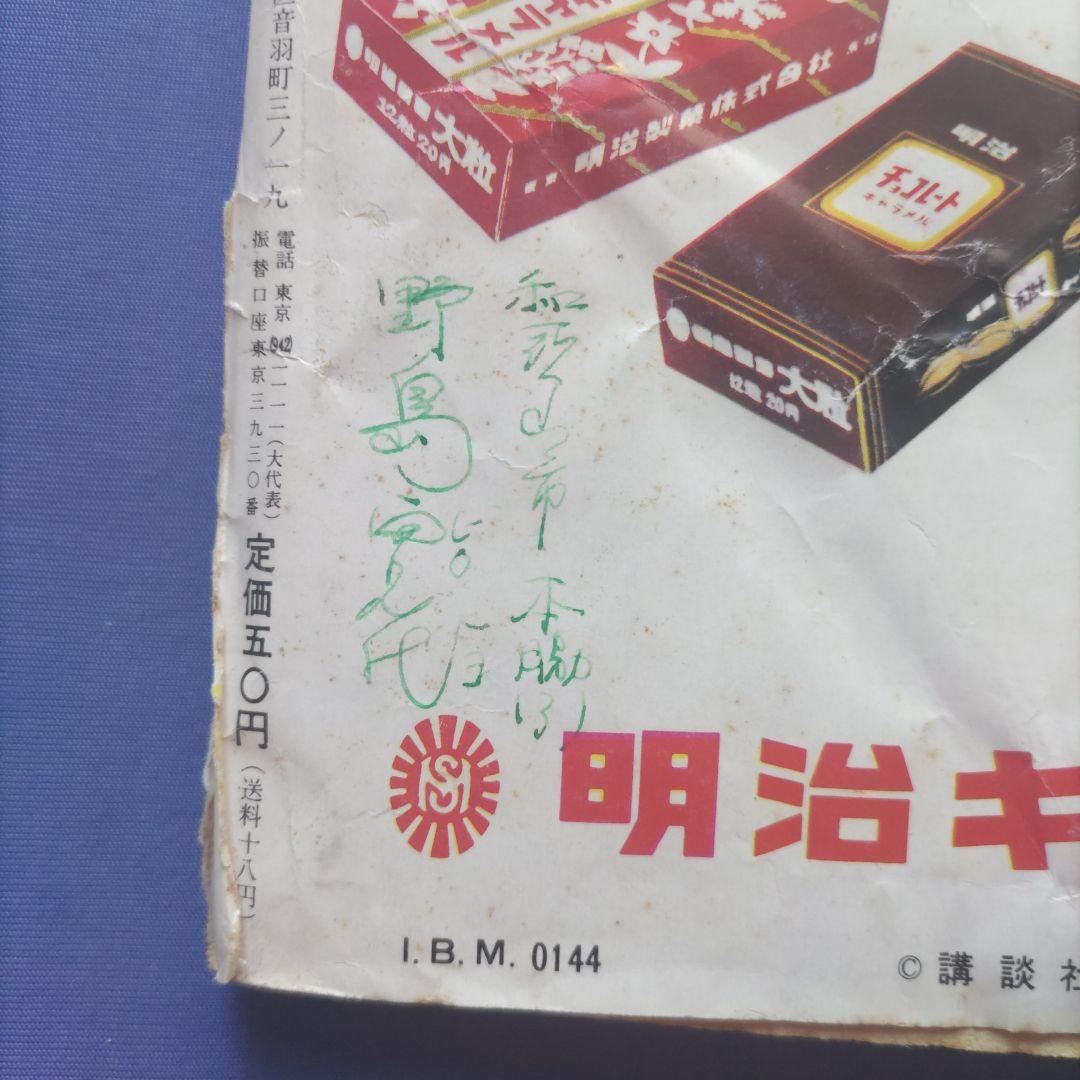 音羽町三ノ一九
電話 東京(942)一一一一(大代表)
振替口座東京三九三〇番
定価五〇円
(送料十八円)
キャラメル
大粒
12粒 20円
明治製菓株式会社
明治
チョコレート
キャラメル
大粒
12粒 20円
大粒
和歌山市 本脇
野島寛代
明治キ
I.B.M. 0144
© 講談社